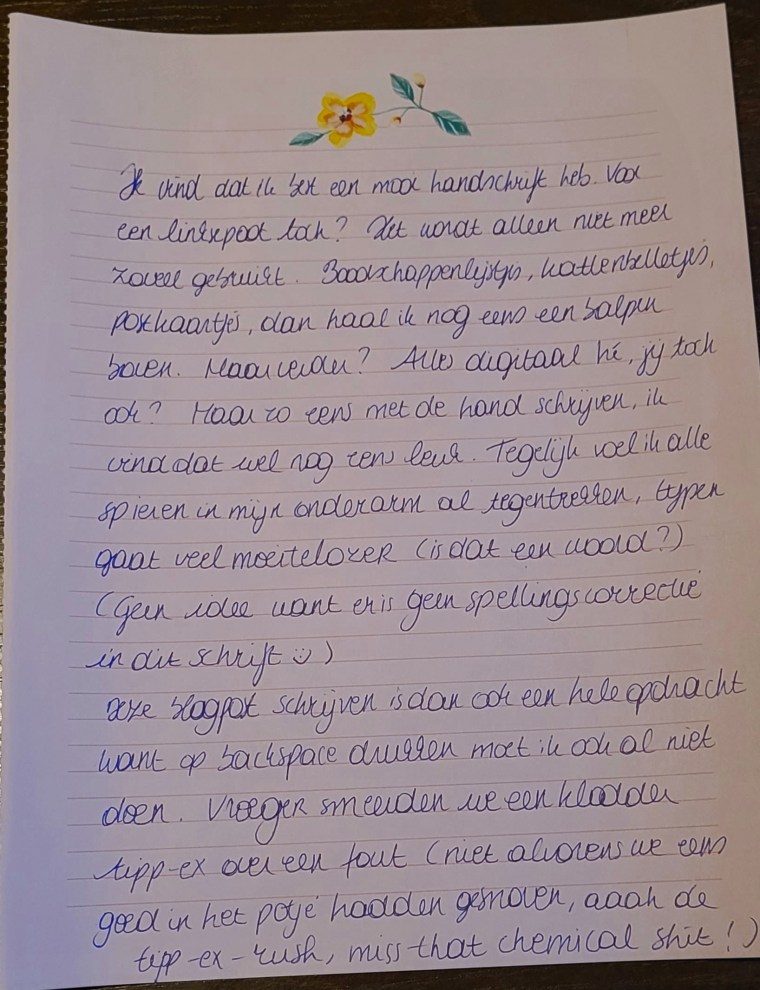 Ik vind dat ik best een mooi handschrift heb. Voor
een linkspoot toch? Het wordt alleen niet meer
zoveel gebruikt. Boodschappenlijstjes, kattenbelletjes,
postkaartjes, dan haal ik nog eens een balpen
boven. Maar verder? Alles digitaal hé, jij toch
ook? Maar zo eens met de hand schrijven, ik
vind dat wel nog eens leuk. Tegelijk voel ik alle
spieren in mijn onderarm al tegentrekken, typen
gaat veel moeitelozer (is dat een woord?)
(Geen idee want er is geen spellingscorrectie
in dit schrift ☺)
Deze blogpost schrijven is dan ook een hele opdracht
want op backspace drukken moet ik ook al niet
doen. Vroeger smeerden we een kladder
tipp-ex over een fout (niet alvorens we eens
goed in het potje hadden gesnoven, aaah de
tipp-ex-rush, miss that chemical shit!)